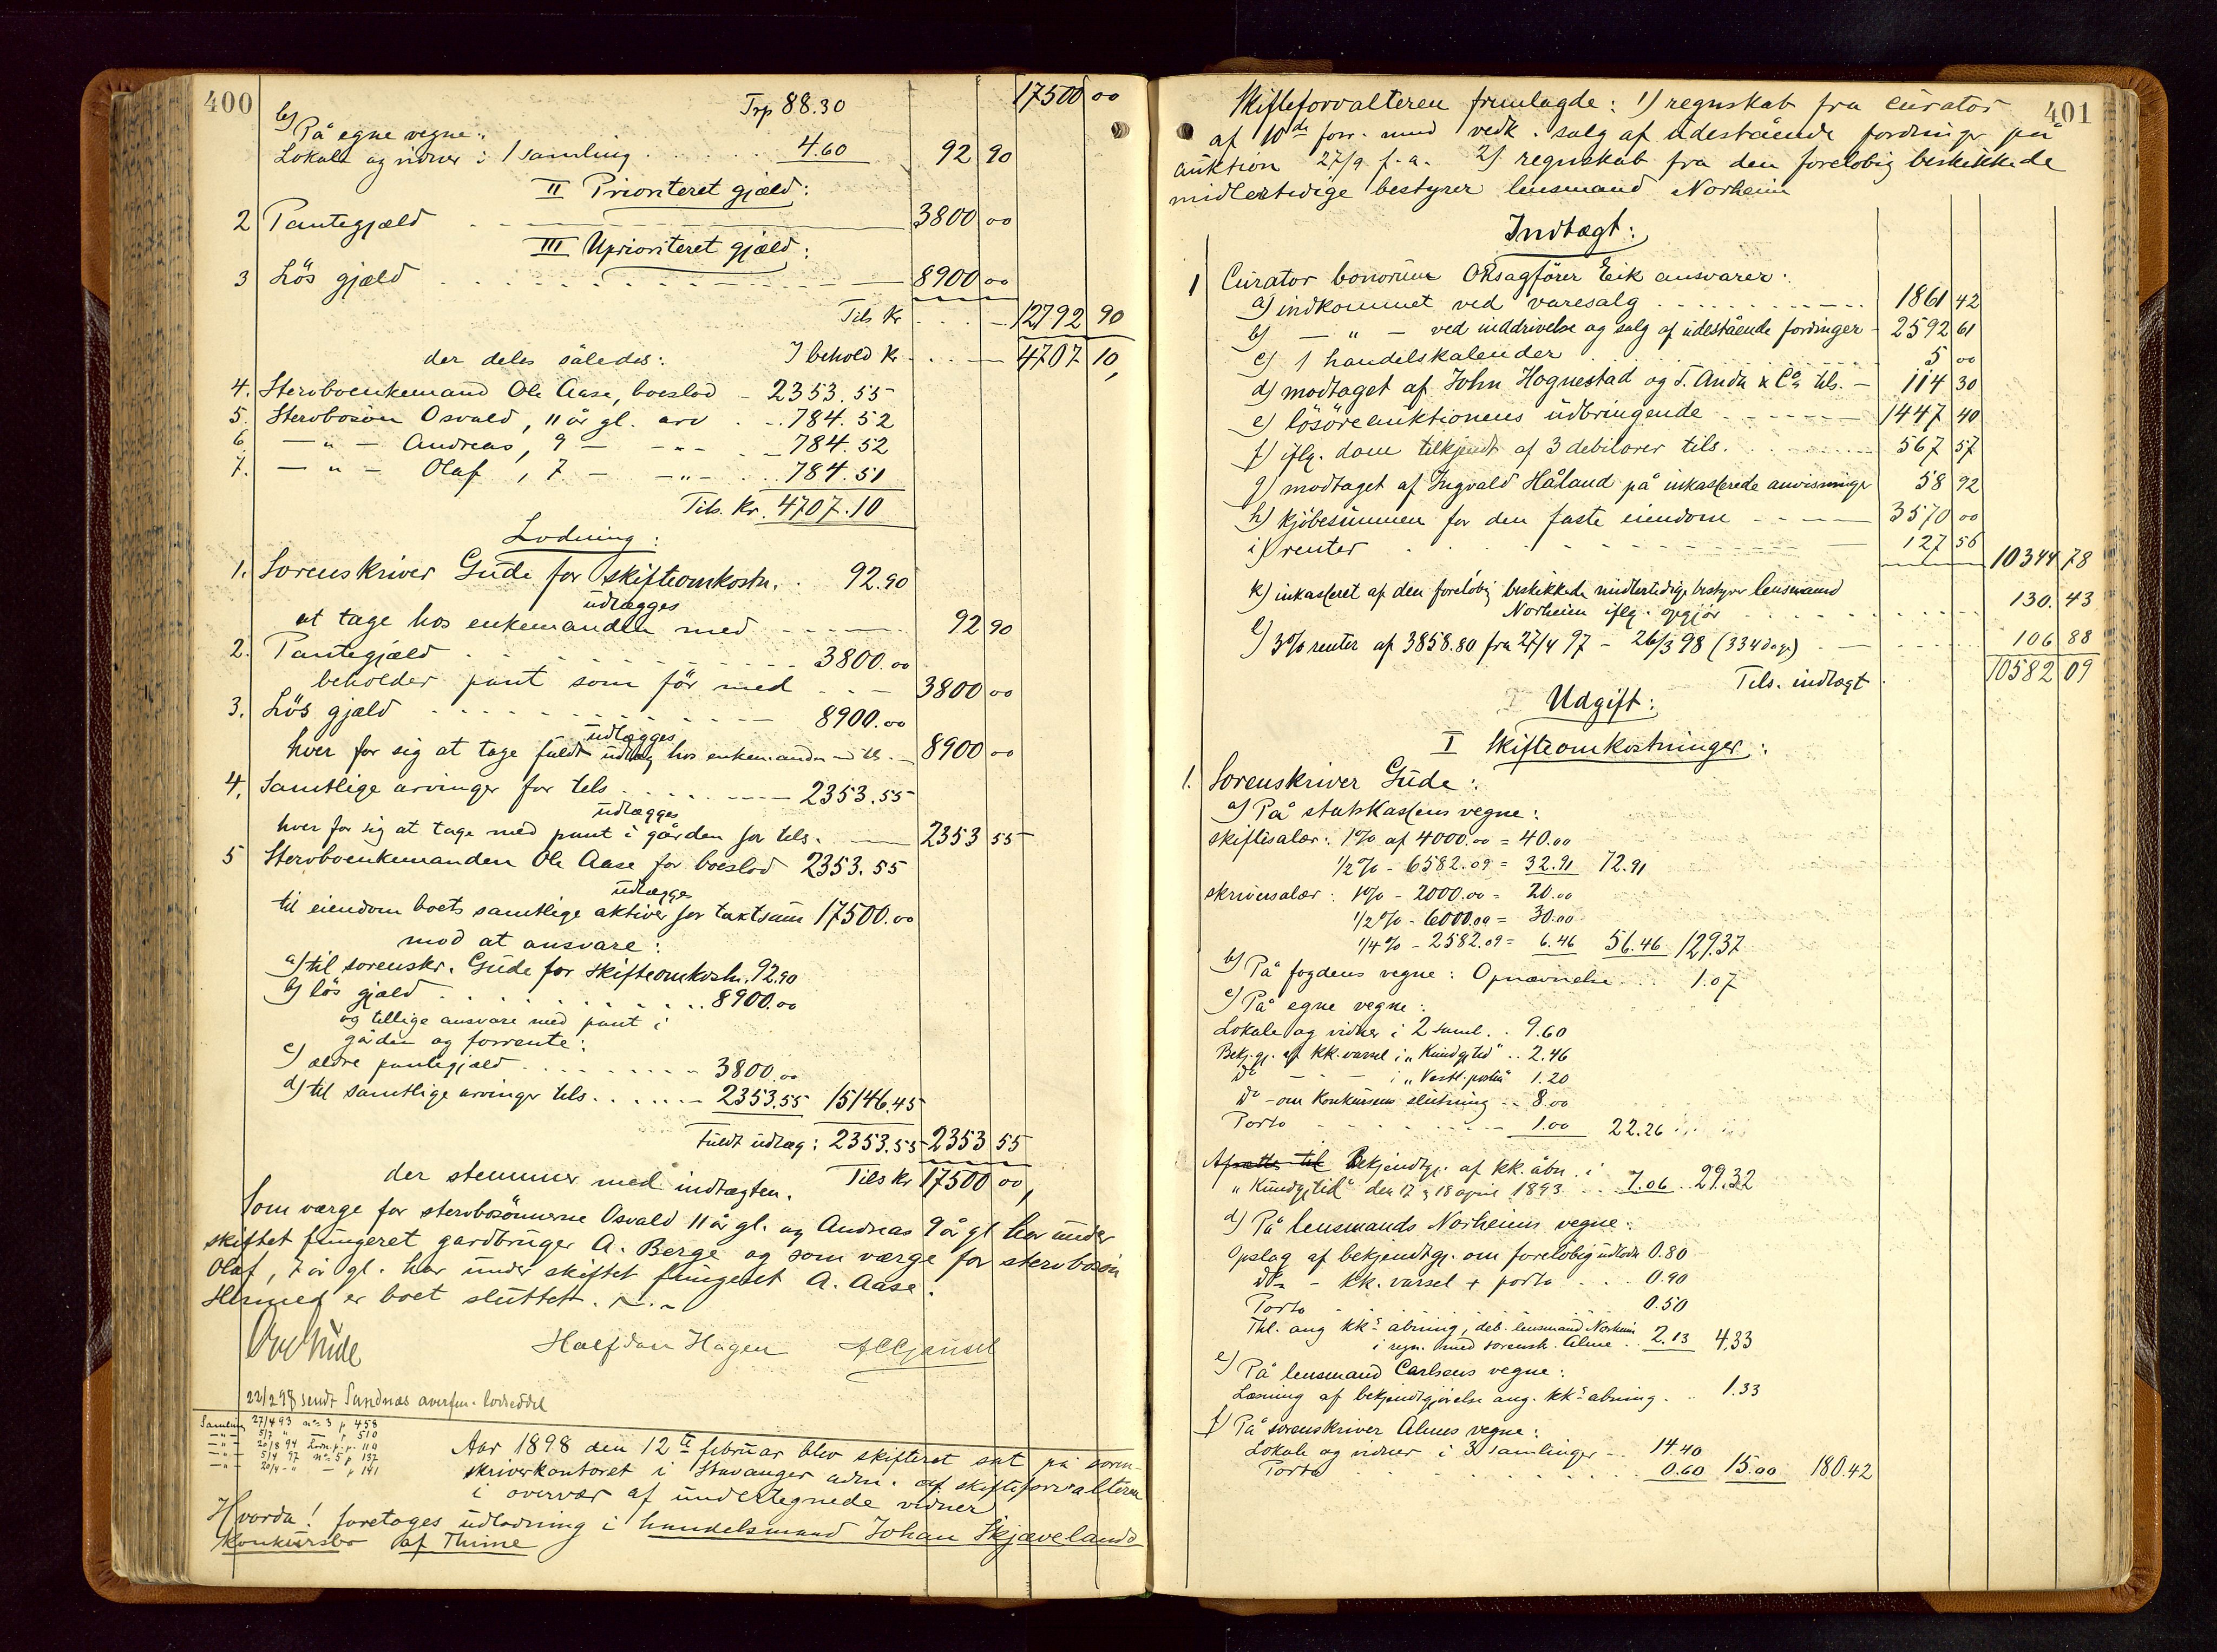 400
Trp 88.30 17500 00
b) På egne vegne:
Lokale og vidner i 1 samling . . . . . 4.60 92 90
II Prioriteret gjæld:
2 Pantegjæld - - - 3800 00
III Uprioriteret gjæld:
3 Løs gjæld . . . . . 8900 00
Tils Kr . . - 12792 90
der deles således: I behold K - - 4707 10,
4. Stervboenkemand Ole Aase, boeslod - 2353.55
5. Stervbosön Osvald, 11 år gl. arv . - 784.52
6. — " — Andreas, 9 — - - - 784.52
7. — " — Olaf, 7 - — " - . . 784.51
Tils. Kr. 4707.10
Lodning:
1. Sorenskriver Gude for skifteomkostn. . 92.90
udlægges
at tage hos enkemanden med - - - 92 90
2. Pantegjæld . . . . . 3800.00
beholder pant som för med . . - 3800 00
3. Lös gjæld - - - - 8900.00
udlægges
hver for sig at tage fuldt udlæg hos enkemanden m tls. - 8900 00
4. Samtlige arvinger for tils . . . . - - 2353.55
udlægges
hver for sig at tage med pant i gården for tils. — 2353 55
5 Stervboenkemanden Ole Aase for boeslod 2353.55
udlægges
til eiendom boets samtlige aktiver for taxtsum 17500.00
mod at ansvare:
a) til sorenskr. Gude for skifteomkostn. 92.90
b) lös gjæld . . . . . . 8900.00
og tillige ansvare med pant i
gården og forrente:
c) ældre pantegjæld . . . . . 3800.00
d) til samtlige arvinger tils. . . . . - 2353.55 15146.45
fuldt udlæg: 2353.55 2353 55
der stemmer med indtægten. Tils Kr 17500 00,
Som værge for stervbosönnerne Osvald 11 år gl. og Andreas 9 år gl har under
skiftet fungeret gardbruger A. Berge og som værge for stervbosön
Olaf, 7 år gl. har under skiftet fungeret A. Aase.
Hermed er boet sluttet.
Ove Gude Halfdan Hagen
22/2 98 sendt Sandnæs
Samling 27/4 93 no 3 p 458
— " — 5/7 " — " p 510
— " — 20/8 94 Lodn.p. p. 119
— " — 5/4 97 no 5 p 137
— " — 20/4 - " — p 141
Aar 1898 den 12te februar blev skifteret sat på soren-
skriverkontoret i Stavanger adm. af skifteforvalteren
i overvær af undertegnede vidner
Hvorda! foretages udlodning i handelsmand Johan Skjævelands
Konkursbo af Thime
401
Skifteforvalteren fremlagde: 1) regnskab fra curator
af 10de forr. mnd vedk. salg af udestående fordringer på
auktion 27/9 f.a. 2) regnskab fra den foreløbig beskikkede
midlertidige bestyrer lensmand Norheim
Indtægt:
1 Curator bonorum ORsagförer Eik ansvarer:
a) indkommet ved varesalg . . . . . . 1861 42
b) — " — ved inddrivelse og salg af udestående fordringer - 2592 61
c) 1 handelskalender . . . . . 5 00
d) modtaget af John Hognestad og T. Anda & Co, tils. - 114 30
e) lösöreauktionens udbringende - - - - 1447 40
f) iflg. dom tilkjendt af 3 debitorer tils. . . . 567 57
g) modtaget af Ingvald Håland på inkasserede anvisninger 58 92
h) kjöbesummen for den faste eiendom - - - 3570 00
i) renter . . . . . - - - 127 56 10344 78
k) inkasseret af den foreløbig beskikkede midlertidige bestyrer lensmand
Norheim iflg. opgjör . . . . . 130. 43
l) 3% renter af 3858.80 fra 27/4 97 - 26/3 98 (334 dage) . - . . . . 106 88
Tils. indtægt . 10582 09
Udgift:
I Skifteomkostninger:
1. Sorenskriver Gude:
a) På statskassens vegne:
skiftesalær: 1% af 4000.00 = 40.00
1/2 % - 6582.09 = 32.91 72.91
skriversalær: 1% - 2000.00 = 20.00
1/2 % - 6000.00 = 30.00
1/4 % - 2582.09 = 6.46 56.46 129.37
b) På fogdens vegne: Opnævnelse . . . 1.07
c) På egne vegne:
Lokale og vidner i 2 saml. . 9.60
Bekj.gj. af kk. varsel i "Kundgj.tid" . . 2.46
Do — — i "Vestl. posten" 1.20
Do - om konkursens slutning . . 8.00
Porto - - - - - 1.00 22.26
Afsattes til Bekjendtgj. af kk. åbn. i
"Kundgjtid" den 17 & 18 april 1893 . . 7.06. 29.32
d) På lensmands Norheims vegne:
Opslag af bekjendtgj. om foreløbig udlodn 0.80
do - kk. varsel + porto . . . 0.90
Porto - - 0.50
Thl. ang kks åbning, deb. lensmand Norheim
i regn. med sorensk. Alme . . 2.13 4.33
e) På lensmand Carlsens vegne:
Læsning af bekjendtgjörelse ang. kks åbning. . . 1.33
f) På sorenskriver Almes vegne:
Lokale og vidner i 3 samlinger - . 14.40
Porto . . . . . . 0.60 15.00 180.42